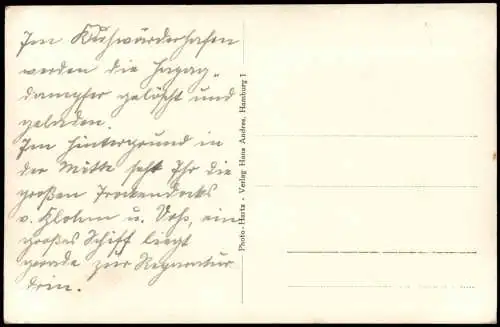 Im Kuhwärderhafen
werden die Hapag-
dampfer gelöscht und
geladen.
Im Hintergrund in
der Mitte seht Ihr die
großen Trockendocks
v. Blohm u. Voß, ein
großes Schiff liegt
gerade zur Reparatur
drin.
Photo-Hartz · Verlag Hans Andres, Hamburg 1